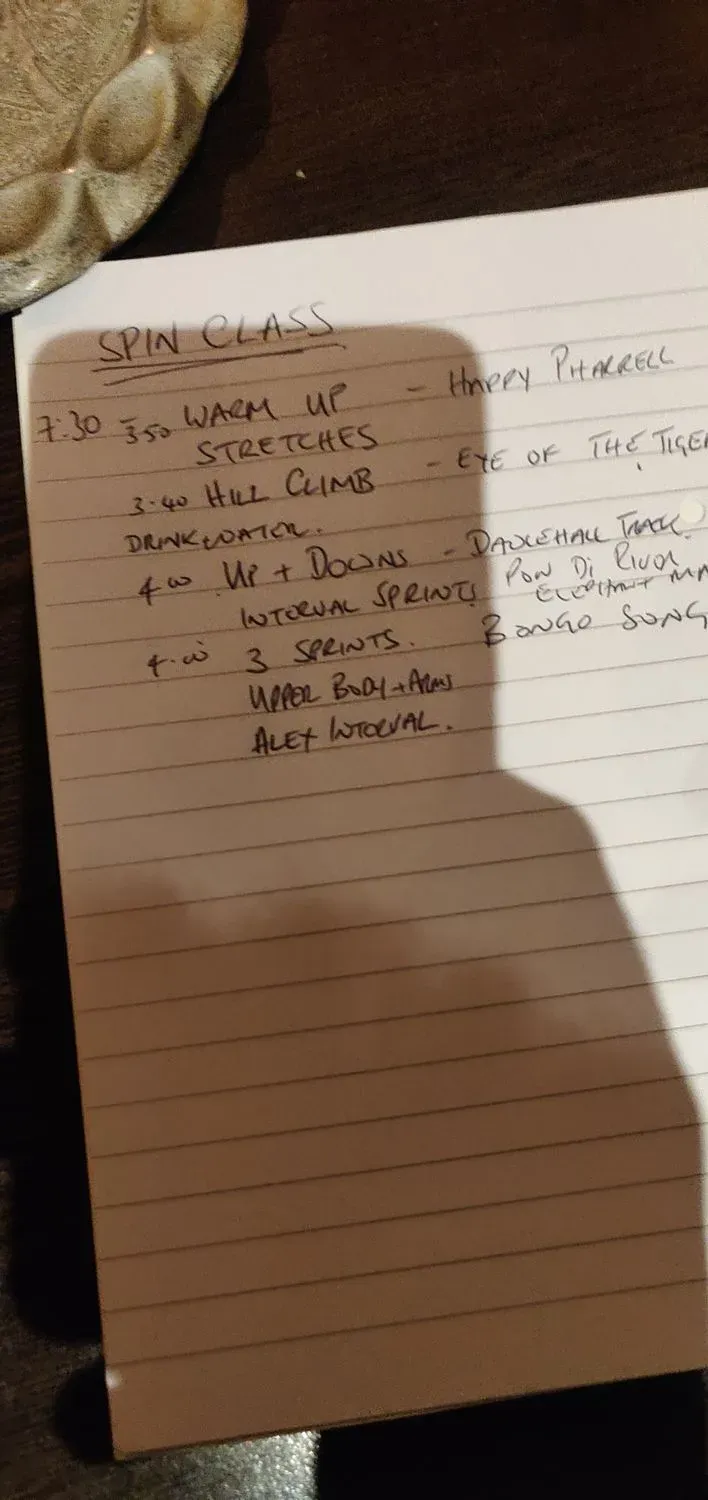 SPIN CLASS
7:30 3:50 WARM UP - HAPPY PHARRELL
STRETCHES
3.40 HILL CLIMB - EYE OF THE TIGER
DRINK WATER.
4.00 UP + DOWNS - DANCEHALL TRACK.
INTERVAL SPRINTS PON DI RIVER
ELEPHANT MA
4.00 3 SPRINTS. BONGO SONG
UPPER BODY + ARMS
ALEX INTERVAL.